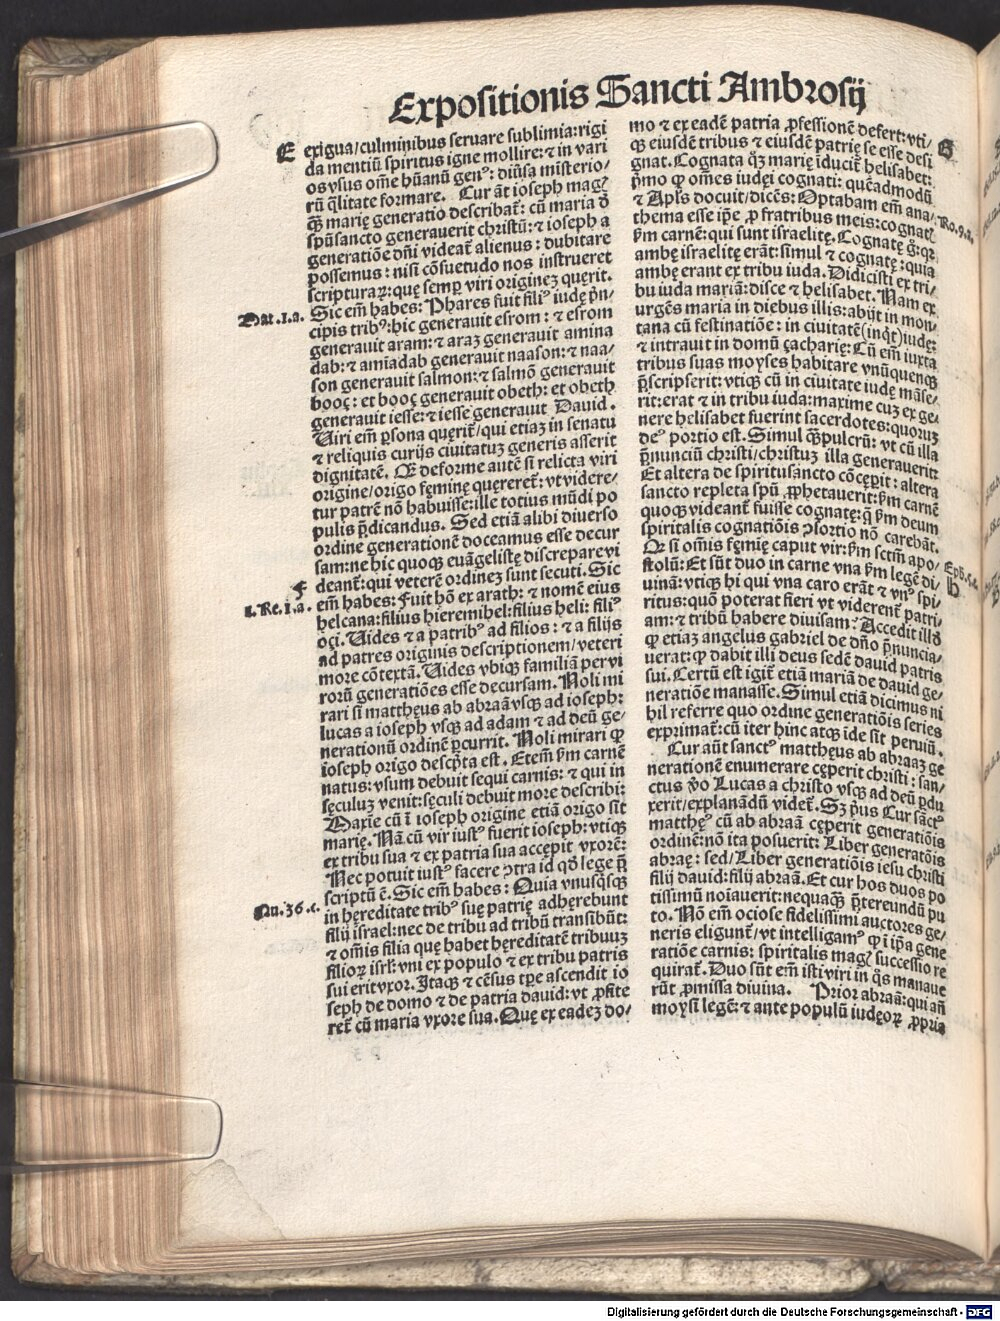 Expositionis Sancti Ambrosij
E
exigua/culminibus seruare sublimia:rigi
da mentiũ spiritus igne mollire:⁊ in vari
os vsus om̃e hũanũ genꝰ: diũsa misterio/
rũ q̃litate formare. Cur ãt ioseph magꝭ
q̃ꝫ marię generatio describat̃: cũ maria ð
spũsancto generauerit christũ:⁊ ioseph a
generatiõe dñi videat̃ alienus: dubitare
possemus: nisi cõsuetudo nos instrueret
scripturaꝝ:quę semꝑ viri originez quęrit.
Mat.1.a.
Sic em̃ habes: Phares fuit filiꝰ iudę p̃n/
cipis tribꝰ:hic generauit esrom: ⁊ esrom
generauit aram:⁊ araꝫ generauit amina
dab:⁊ amiadab generauit naason:⁊ naa/
son generauit salmon:⁊ salmõ generauit
booç: et booç generauit obeth: et obeth
generauit iesse:⁊ iesse generauit Dauid.
Uiri em̃ ꝑsona quęrit̃/qui etiaꝫ in senatu
⁊ reliquis curijs ciuitatuꝫ generis asserit
dignitatẽ. Qꝫ deforme autẽ si relicta viri
origine/origo fęminę quęreret̃: vt videre/
tur patrẽ nõ habuisse:ille totius mũdi po
pulis p̃dicandus. Sed etiã alibi diuerso
ordine generationẽ doceamus esse decur
sam:ne hic quoqꝫ euãgelistę discrepare vi
F
deant̃:qui veterẽ ordineꝫ sunt secuti. Sic
1.Re.1.a.
em̃ habes: Fuit hõ ex arath: ⁊ nomẽ eius
helcana:filius hieremihel:filius heli: filiꝰ
oçi. Uides ⁊ a patribꝰ ad filios: ⁊ a filijs
ad patres originis descriptionem/veteri
more cõtextã. Uides vbiqꝫ familiã per vi
rorũ generatiões esse decursam. Noli mi
rari si matthęus ab abraã vsqꝫ ad ioseph:
lucas a ioseph vsqꝫ ad adam ⁊ ad deũ ge/
nerationũ ordinẽ ꝑcurrit. Noli mirari ꝙ
ioseph origo descp̃ta est. Etem̃ ẜm carnẽ
natus: vsum debuit sequi carnis: ⁊ qui in
sęculuꝫ venit:sęculi debuit more describi:
Maxie cũ ĩ ioseph origine etiã origo sit
marię. Nã cũ vir iustꝰ fuerit ioseph: vtiqꝫ
ex tribu sua ⁊ ex patria sua accepit vxorẽ:
Nec potuit iustꝰ facere ꝯtra id qð lege p̃
scriptũ ẽ. Sic em̃ habes: Quia vnusq̃sqꝫ
Nu.36.c.
in hęreditate tribꝰ suę patrię adhęrebunt
filij israel:nec de tribu ad tribũ transibũt:
⁊ om̃is filia quę habet hęreditatẽ tribuuꝫ
filioꝝ isrl̃:vni ex populo ⁊ ex tribu patris
sui erit vxor. Itaqꝫ ⁊ cẽsus tꝑe ascendit io
seph de domo ⁊ de patria dauid: vt ꝓfite
ret̃ cũ maria vxore sua. Quę ex eadeꝫ do/
mo ⁊ ex eadẽ patria ꝓfessionẽ defert: vti/
G
qꝫ eiusdẽ tribus ⁊ eiusdẽ patrię se esse desi
gnat. Cognata q̃ꝫ marię ĩducit̃ helisabet:
p̃mo ꝙ om̃es iudęi cognati: quẽadmodũ
⁊ Apl̃s docuit/dicẽs: Optabam em̃ ana/
Ro.9.a.
thema esse ip̃e ꝓ fratribus meis:cognatꝭ
ẜm carnẽ: qui sunt israelitę. Cognatę g̊: qꝛ
ambę israelitę erãt: simul ⁊ cognatę: quia
ambę erant ex tribu iuda. Didicisti ex tri/
bu iuda mariã: disce ⁊ helisabet. Nam ex
urgẽs maria in diebus illis: abijt in mon/
tana cũ festinatiõe: in ciuitatẽ(inq̃t)iudę:
⁊ intrauit in domũ çacharię: Cũ em̃ iuxta
tribus suas moyses habitare vnũquenqꝫ
p̃scripserit: vtiqꝫ cũ in ciuitate iudę mãse/
rit: erat ⁊ in tribu iuda: maxime cuꝫ ex ge/
nere helisabet fuerint sacerdotes: quoruꝫ
deꝰ portio est. Simul q̃ꝫpulcrũ: vt cũ illa
p̃nunciũ christi/christuꝫ illa generauerit
Et altera de spiritusancto cõcęꝑit: altera
sancto repleta spũ ꝓphetauerit: ẜm carnẽ
quoqꝫ videant̃ fuisse cognatę: q̃ ẜm deum
spiritalis cognatiõis ꝯsortio nõ carebãt.
Qꝫ si om̃is fęmię caput vir: ẜm sctm̃ apo/
Eph̃.5.e.
stolũ: Et sũt duo in carne vna ẜm legẽ di/
H
uinã: vtiqꝫ hi qui vna caro erãt ⁊ vnꝰ spi/
ritus: quõ poterat fieri vt viderent̃ patri/
am: ⁊ tribũ habere diuisam? Accedit illð
ꝙ etiaꝫ angelus gabriel de dño p̃nuncia/
uerat: ꝙ dabit illi deus sedẽ dauid patris
sui. Certũ est igit̃ etiã mariã de dauid ge/
neratiõe manasse. Simul etiã dicimus ni
hil referre quo ordine generatiõis series
exprimat̃: cũ iter hinc atqꝫ ĩde sit peruiũ.
Cur aũt sanctꝰ matthęus ab abraaꝫ ge
nerationẽ enumerare cęperit christi: san/
ctus ꝟo Lucas a christo vsqꝫ ad deũ ꝑdu
xerit/explanãdũ videt̃. Sꝫ p̃us Cur sãctꝰ
matthęꝰ cũ ab abraã cęperit generatiõis
ordinẽ: nõ ita posuerit: Liber generatõis
abraę: sed/Liber generatiõis iesu christi
filij dauid: filij abraã. Et cur hos duos po
tissimũ noiauerit: nequaqꝫ p̃tereundũ pu
to. Nõ em̃ ociose fidelissimi auctores ge/
neris eligunt̃/vt intelligamꝰ ꝙ i ip̃a gene
ratiõe carnis: spiritalis magꝭ successio re
quirat̃. Duo sũt em̃ isti viri in q̃s manaue
rũt ꝓmissa diuina. Prior abraã: qui añ
moysi legẽ: ⁊ ante populũ iudęoꝝ ꝓpria
Digitalisierung gefördert durch die Deutsche Forschungsgemeinschaft - DFG